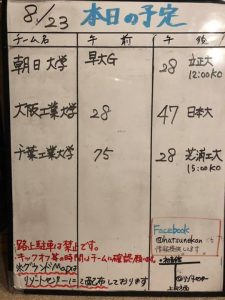 8/23 本日の予定
チーム名 午前 午後
朝日大学 早大G 28 立正大
12:00KO
大阪工業大学 28 47 日本大
千葉工業大学 75 28 芝浦工大
15:00KO
路上駐車は禁止です。
・キックオフ等の時間はチームに確認願います。
※グラウンドMapは
リゾートセンターに配布しております
Facebook
@hatsunekan